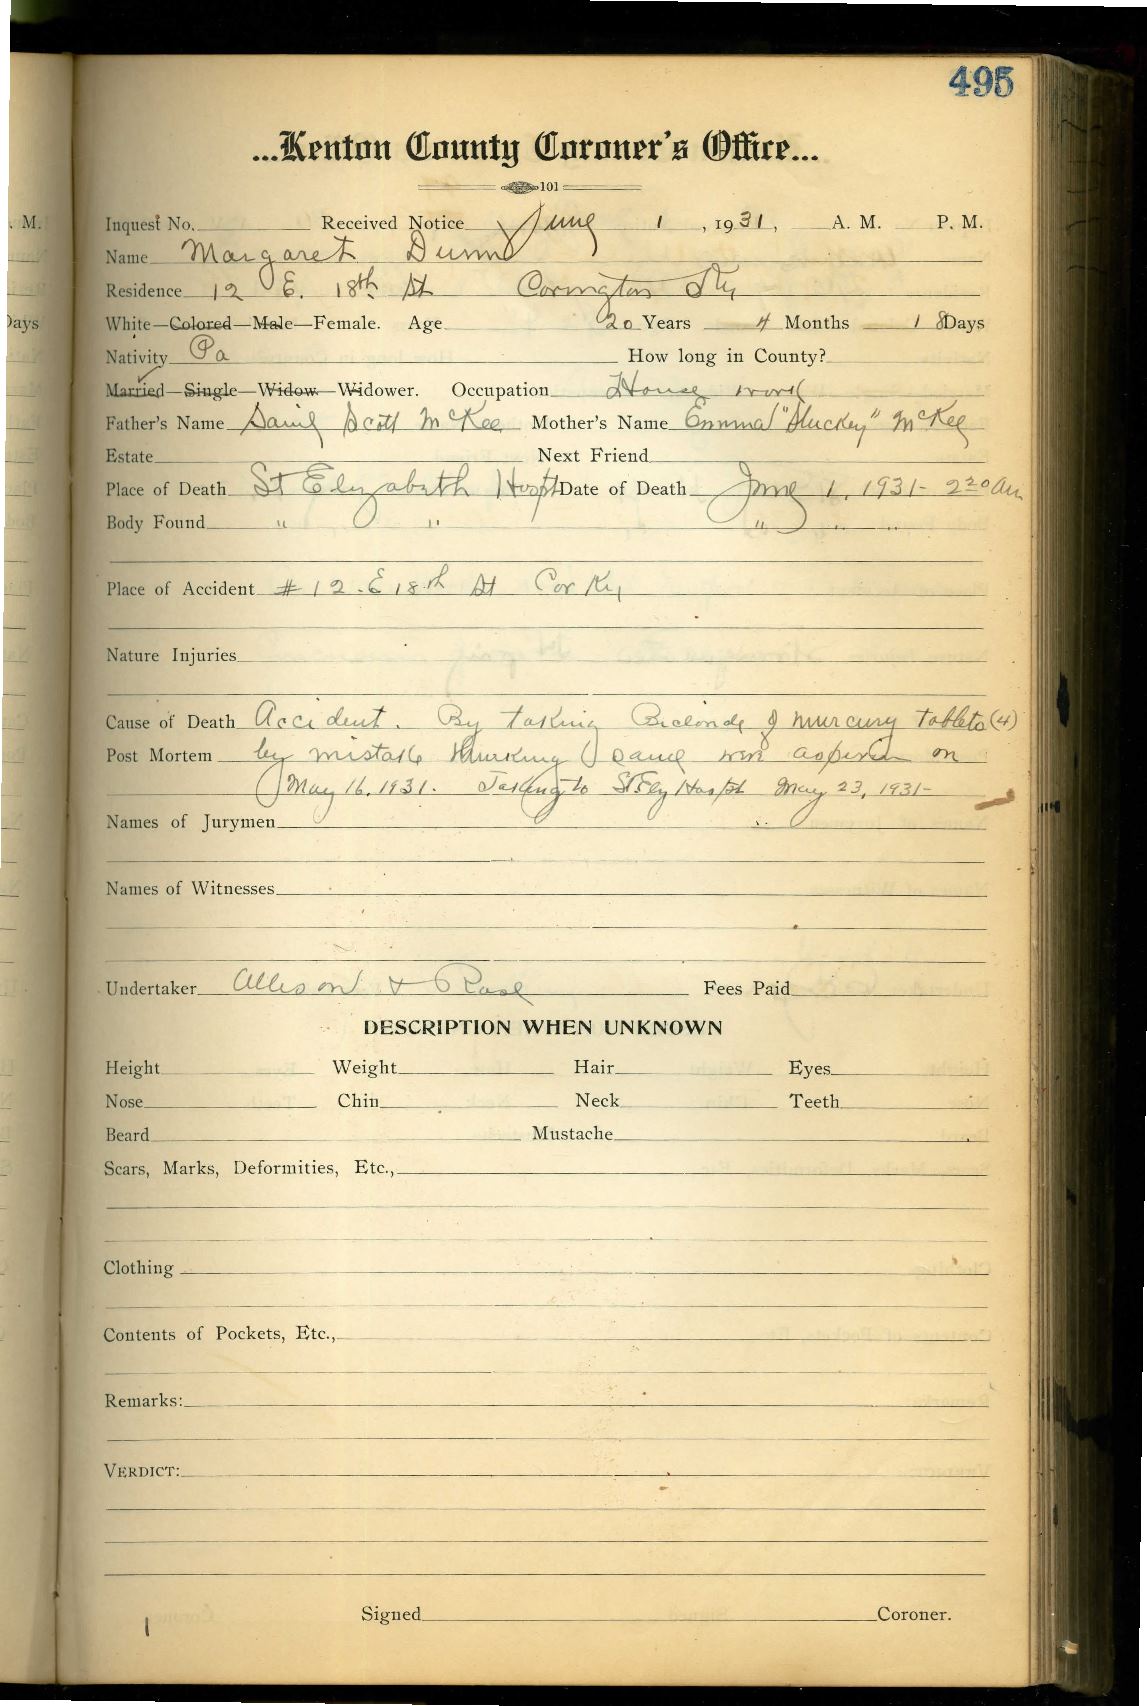 495
...Kenton County Coroner's Office...
101
. M.
Inquest No. Received Notice June 1, 1931, A. M. P. M.
Name Margaret Dunn
Residence 12 E. 18th St Covington Ky
Days
White—Colored—Male—Female. Age 20 Years 4 Months 18 Days
Nativity Pa How long in County?
Married—Single—Widow—Widower. Occupation House work
Father's Name Daniel Scott McKee Mother's Name Emma "Stuckey" McKee
Estate Next Friend
Place of Death St Elizabeth Hospt Date of Death June 1, 1931- 2 20 am
Body Found " " " " "
Place of Accident # 12. E 18th St Cov Ky
Nature Injuries
Cause of Death Accident. By taking Bicloride of murcury tablets (4)
Post Mortem by mistake thinking same was aspirin on
May 16, 1931. Taking to St Ely Hospt May 23, 1931-
Names of Jurymen
Names of Witnesses
Undertaker Allison & Rose Fees Paid
DESCRIPTION WHEN UNKNOWN
Height Weight Hair Eyes
Nose Chin Neck Teeth
Beard Mustache
Scars, Marks, Deformities, Etc.,
Clothing
Contents of Pockets, Etc.,
Remarks:
VERDICT:
Signed Coroner.